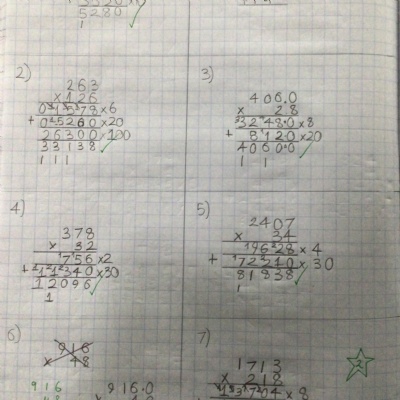 5280
1
2)
263
× 126
01578 × 6
+ 05260 × 20
26300 × 100
33138 ✓
1 1 1
3)
406.0
× 28
3248.0 × 8
+ 8120 × 20
4060.0 ✓
1 1
4)
378
× 32
756 × 2
+ 11340 × 30
12096 ✓
1
5)
2407
× 34
9628 × 4
+ 72210 × 30
81838 ✓
1
6)
916
× 48
916
916.0
7)
1713
× 218
13704 × 8